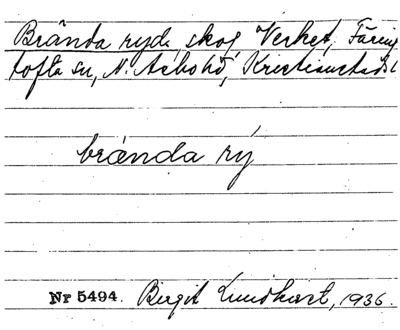 Brända ryd, skog Verket, Färing
tofta sn, N. Åsbo hd, Kristianstads l
brända rý
Nr 5494. Birgit Lundkvist, 1936.